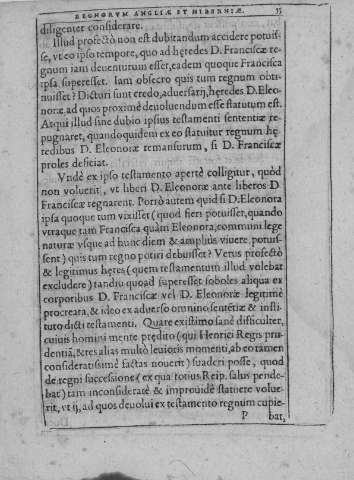 REGNORVM ANGLIÆ ET HIBERNIÆ. 55
diligenter considerare.
Illud profectò non est dubitandum accidere potuis-
se, vt eo ipso tempore, quo ad hęredes D. Franciscæ re-
gnum iam deuenturum esset, eadem quoque Francisca
ipsa superesset. Iam obsecro quis tum regnum obti-
nuisset? Dicturi sunt credo, aduersarij, hęredes D. Eleo-
noræ, ad quos proximè deuoluendum esse statutum est.
Atqui illud sine dubio ipsius testamenti sententiæ re-
pugnaret, quandoquidem ex eo statuitur regnum hę-
redibus D. Eleonoræ remansurum, si D. Franciscæ
proles deficiat.
Vndè ex ipso testamento apertè colligitur, quòd
non voluerit, vt liberi D. Eleonoræ ante liberos D.
Franciscæ regnarent. Porrò autem quid si D. Eleonora
ipsa quoque tum vixisset (quod fieri potuisset, quando
vtraque tam Francisca quàm Eleonora, communi lege
naturæ vsque ad hunc diem & ampliùs viuere potuis-
sent) quis tum regno potiri debuisset? Verus profectò
& legitimus hęres (quem testamentum illud volebat
excludere) tandiu quoad superesset soboles aliqua ex
corporibus D. Franciscæ vel D. Eleonoræ legitimè
procreata, & ideo ex aduerso omnino sentētiæ & insti-
tuto dicti testamenti. Quare existimo sanè difficulter,
cuiuis homini mente prędito (qui Henrici Regis pru-
dentiā, & res alias multò leuioris momenti, ab eo tamen
consideratissimè factas nouerit) suaderi posse, quod
de regni successione (ex qua totius Reip. salus pende-
bat) tam inconsideratè & improuidè statuere volue-
rit, vt ij, ad quos deuolui ex testamento regnum cupie-
P bat,